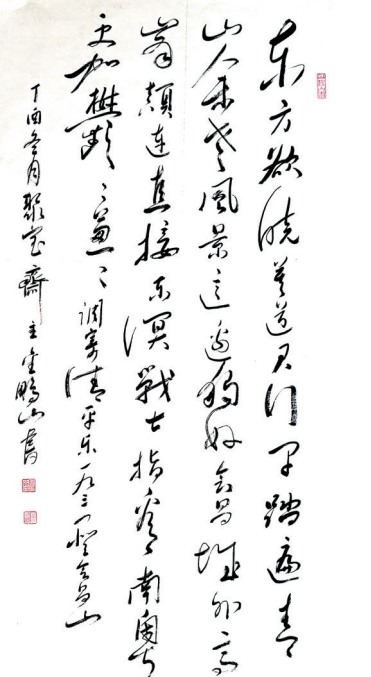 东方欲晓莫道君行早踏遍青
山人未老風景这边独好会昌城外高
峯颠连直接东溟戰士指看南粤
更加欝〻葱〻调寄清平乐一九三四登会昌山
丁酉冬月聚宝齋主金鹏山書